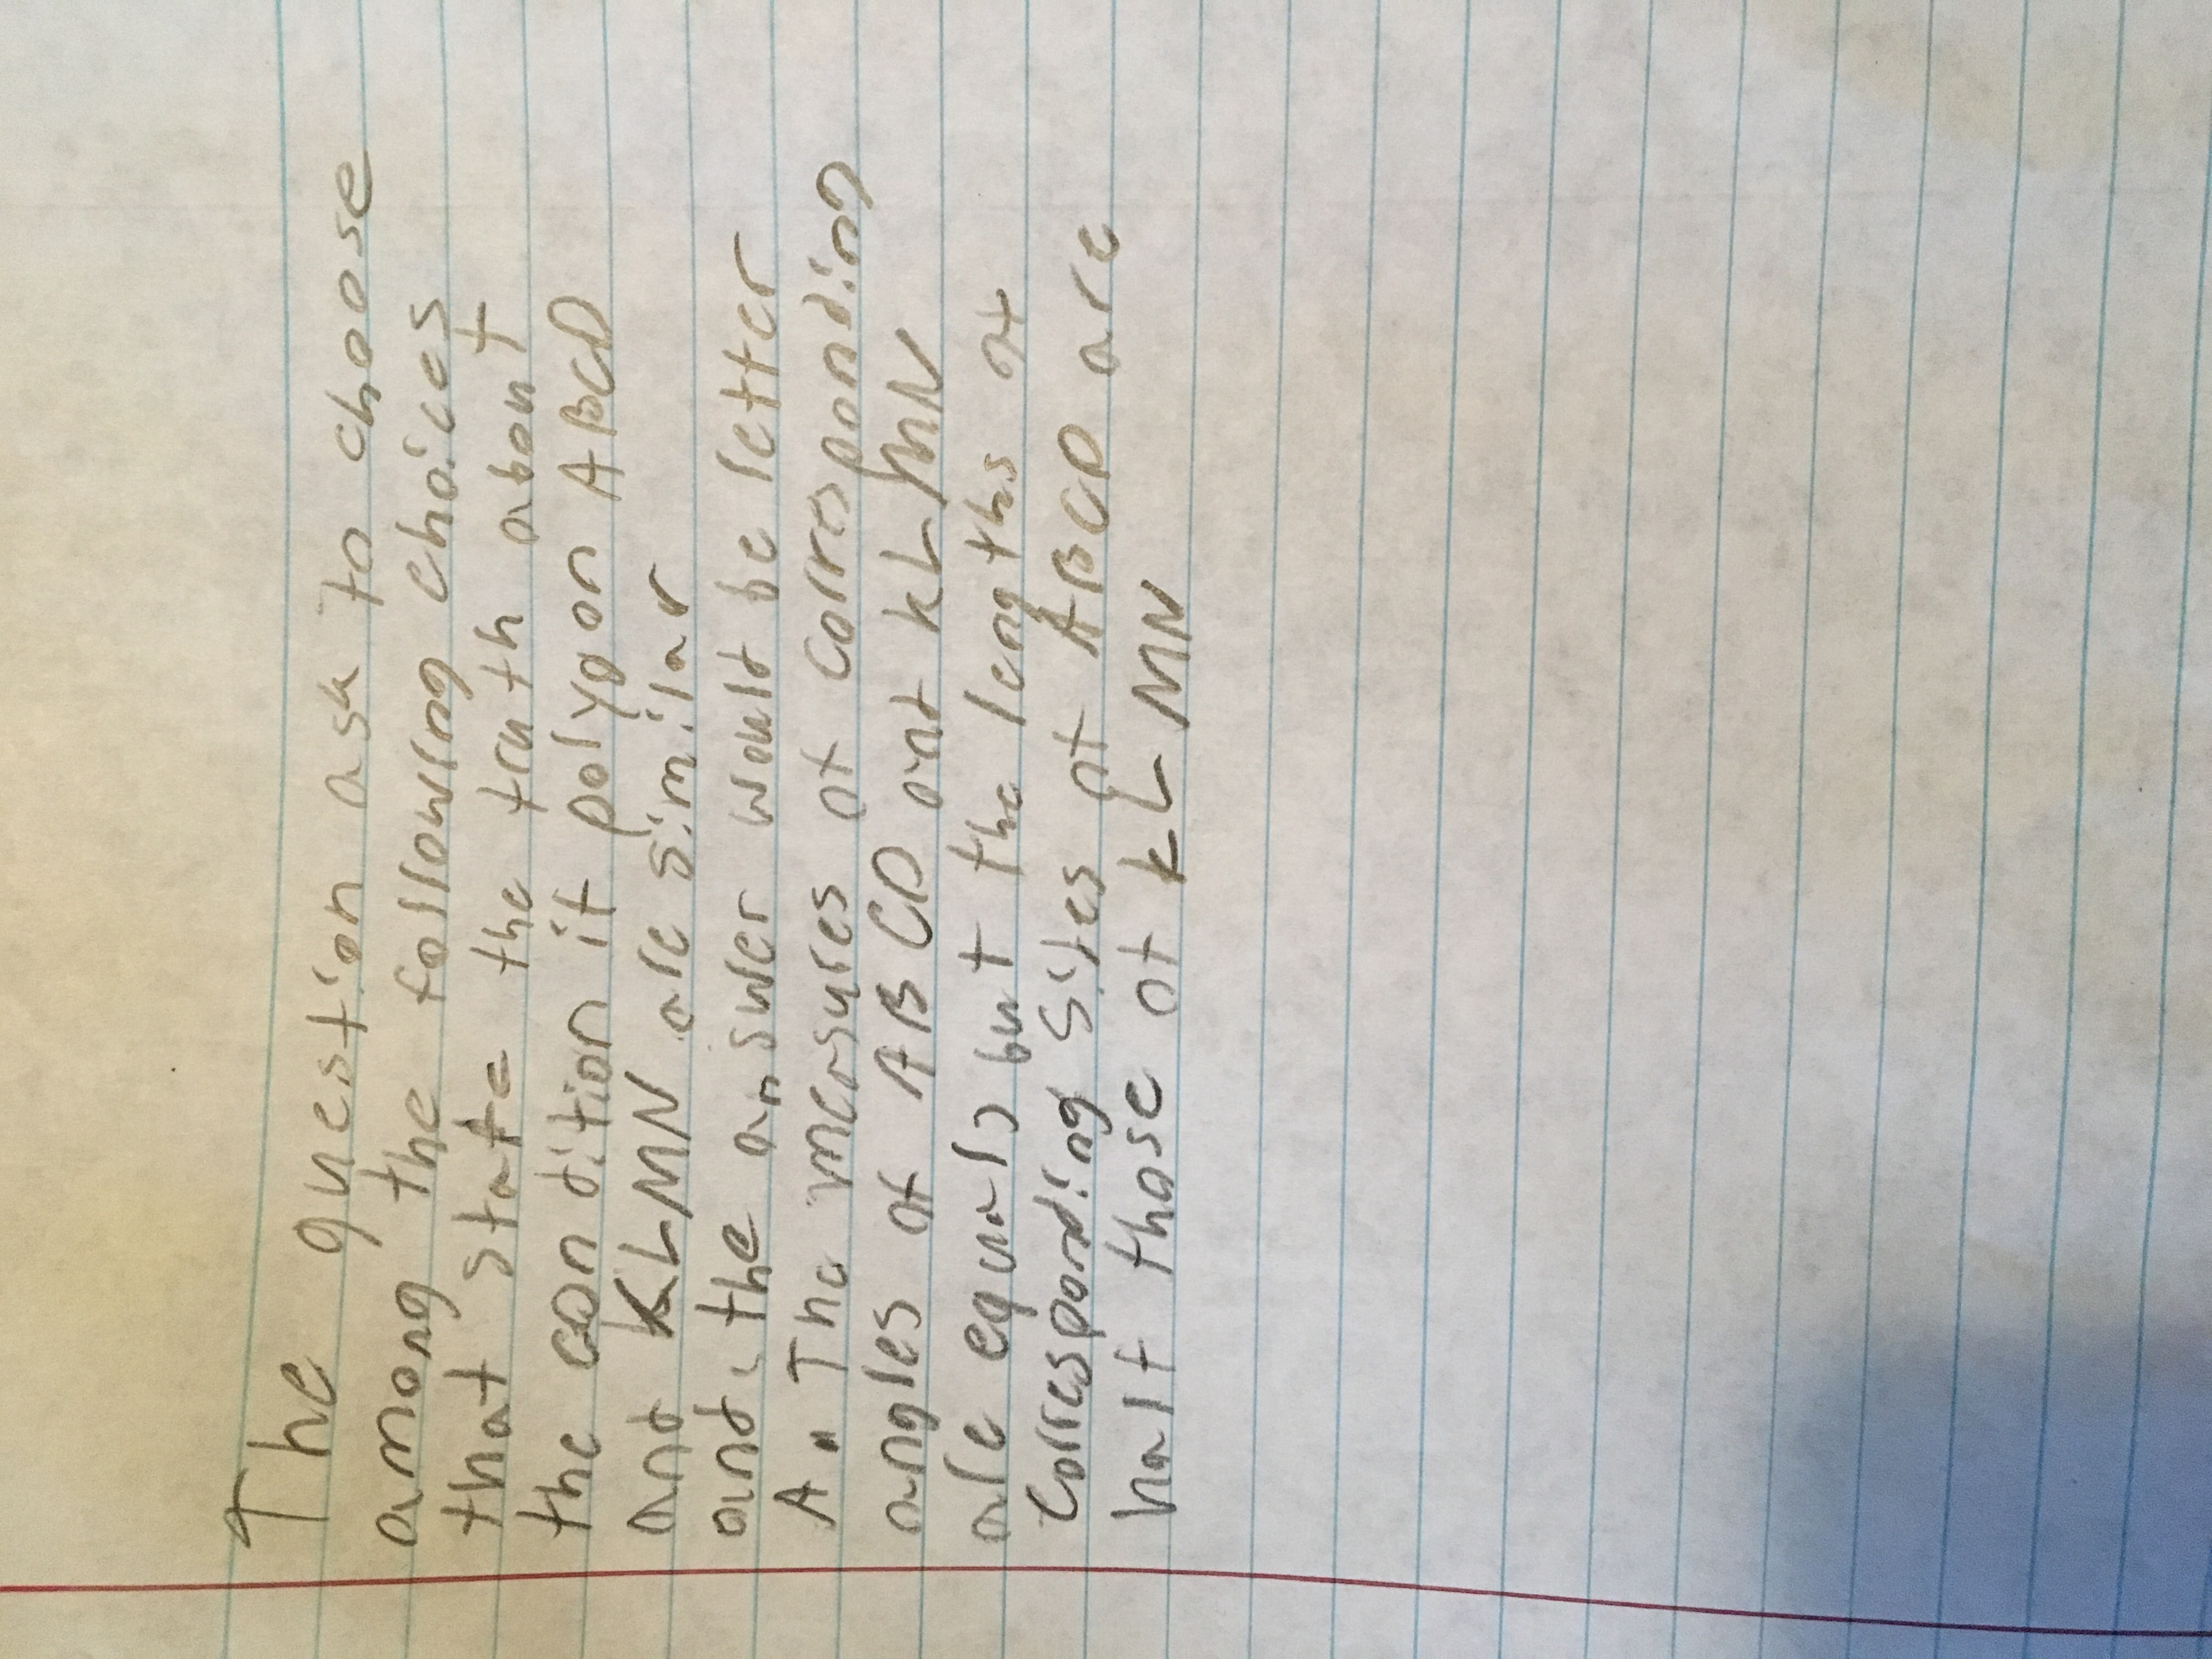 The question ask to choose
among the following choices
that state the truth about
the condition if polygon ABCD
and KLMN are similar
and the answer would be letter
A. The measures of corresponding
angles of ABCD and KLMN
are equal, but the lengths of
corresponding sides of ABCD are
half those of KLMN